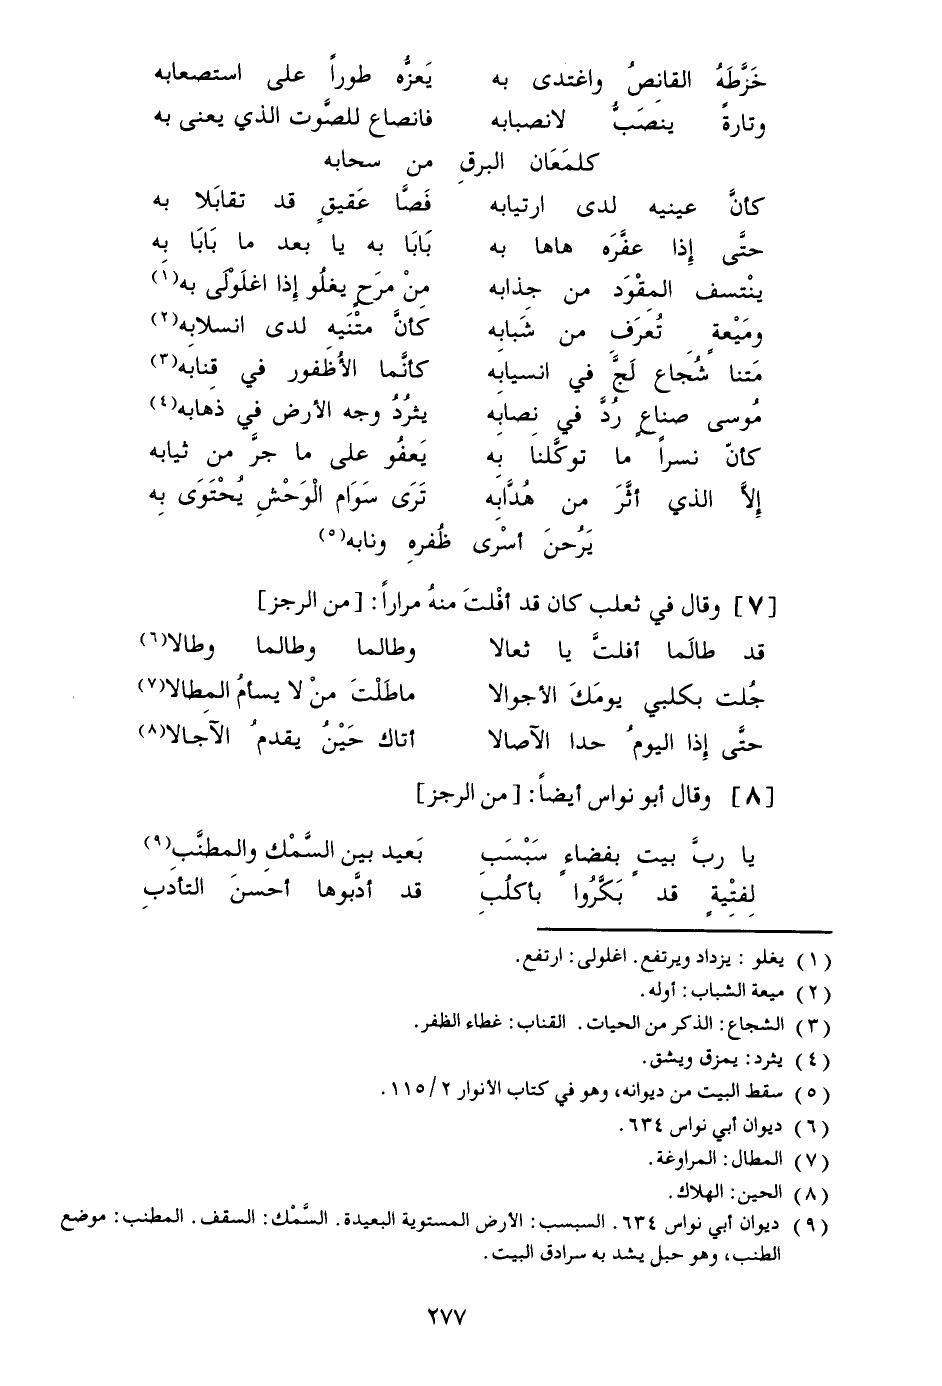 خَرَّطَهُ القانِصُ واغتدى به يَعزُّه طوراً على استصعابه
وتارةً ينصَبُّ لانصبابه فانصاع للصَّوت الذي يعنى به
كلمَعَان البرقِ من سحابه
كأنَّ عينيه لدى ارتيابه فَصَّا عَقيقٍ قد تقابَلا به
حتَّى إِذا عفَّرَه هاها به بَابَا به يا بعد ما بَابَا به
ينْتسف المقْوَد من جذابه مِنْ مرَحٍ يغلُو إذا اغلَوْلَى به(١)
ومَيْعةٍ تُعرَف من شَبابه كأنَّ متْنَيه لدى انسلابِه(٢)
مَتنا شُجاع لَجَّ في انسيابِه كأنَّما الأُظفور في قِنابه(٣)
مُوسى صناعٍ رُدَّ في نِصابِه يثرُدُ وجه الأرض في ذهابه(٤)
كأنّ نسراً ما توكَّلنا بِه يَعفُو على ما جرَّ من ثيابه
إِلاَّ الذي أثَّرَ من هُدَّابِه تَرَى سَوَام الْوَحْشِ يُحْتَوَى بِه
يَرُحنَ أسْرى ظُفرهِ ونابه(٥)
[٧] وقال في ثعلب كان قد أفْلتَ منهُ مراراً: [من الرجز]
قد طالَما أفلتَّ يا ثعالا وطالما وطالما وطالا(٦)
جُلت بكلبي يومَكَ الأجوالا ماطَلْتَ منْ لا يسأمُ المِطالا(٧)
حتَّى إِذا اليومُ حدا الآصالا أتاك حَيْنُ يقدمُ الآجالا(٨)
[٨] وقال أبو نواس أيضاً: [من الرجز]
يا ربَّ بيتٍ بفضاءٍ سَبْسَبِ بَعيد بين السَّمْكِ والمطنَّبِ(٩)
لفتْيةٍ قد بَكَّرُوا بأكلُبِ قد أدَّبوها أحسنَ التأدبِ
(١) يغلو : يزداد ويرتفع. اغلولى: ارتفع.
(٢) ميعة الشباب: أوله.
(٣) الشجاع: الذكر من الحيات. القناب: غطاء الظفر.
(٤) يثرد: يمزق ويشق.
(٥) سقط البيت من ديوانه، وهو في كتاب الأنوار ٢/ ١١٥.
(٦) ديوان أبي نواس ٦٣٤.
(٧) المطال: المراوغة.
(٨) الحين: الهلاك.
(٩) ديوان أبي نواس ٦٣٤. السبسب: الأرض المستوية البعيدة. السَّمْك: السقف. المطنب: موضع
الطنب، وهو حبل يشد به سرادق البيت.
٢٧٧